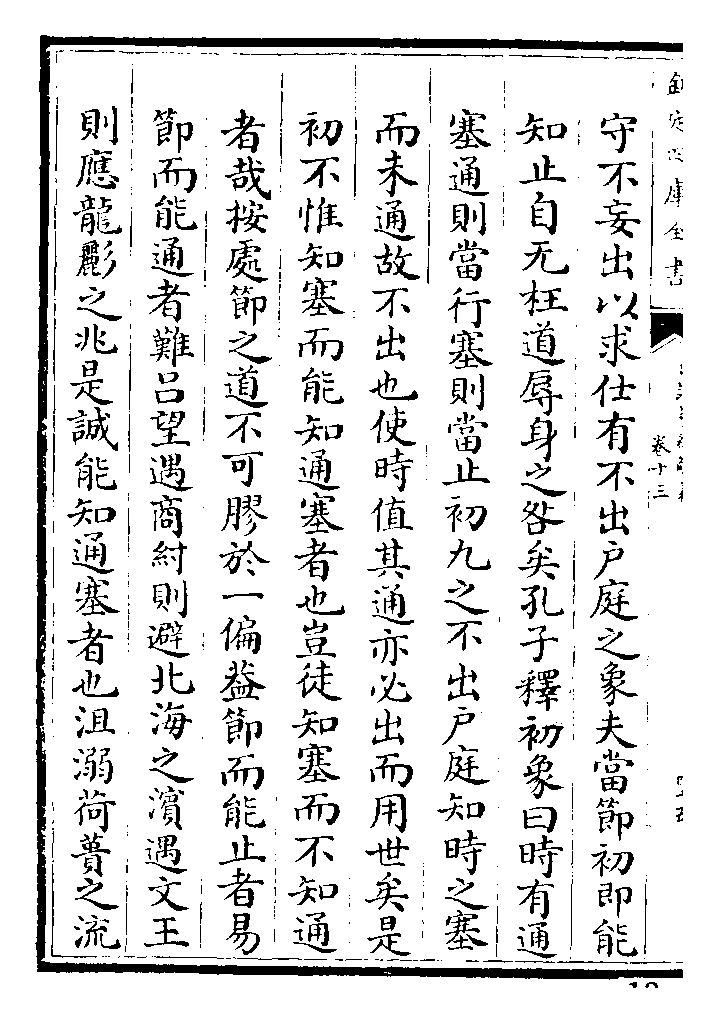 欽定四庫全書
卷十三
守不妄出以求仕有不出户庭之象夫當節初即能
知止自无枉道辱身之咎矣孔子釋初象曰時有通
塞通則當行塞則當止初九之不出户庭知時之塞
而未通故不出也使時值其通亦必出而用世矣是
初不惟知塞而能知通塞者也豈徒知塞而不知通
者哉按處節之道不可膠於一偏葢節而能止者易
節而能通者難吕望遇商紂則避北海之濱遇文王
則應龍彲之兆是誠能知通塞者也沮溺荷蕢之流